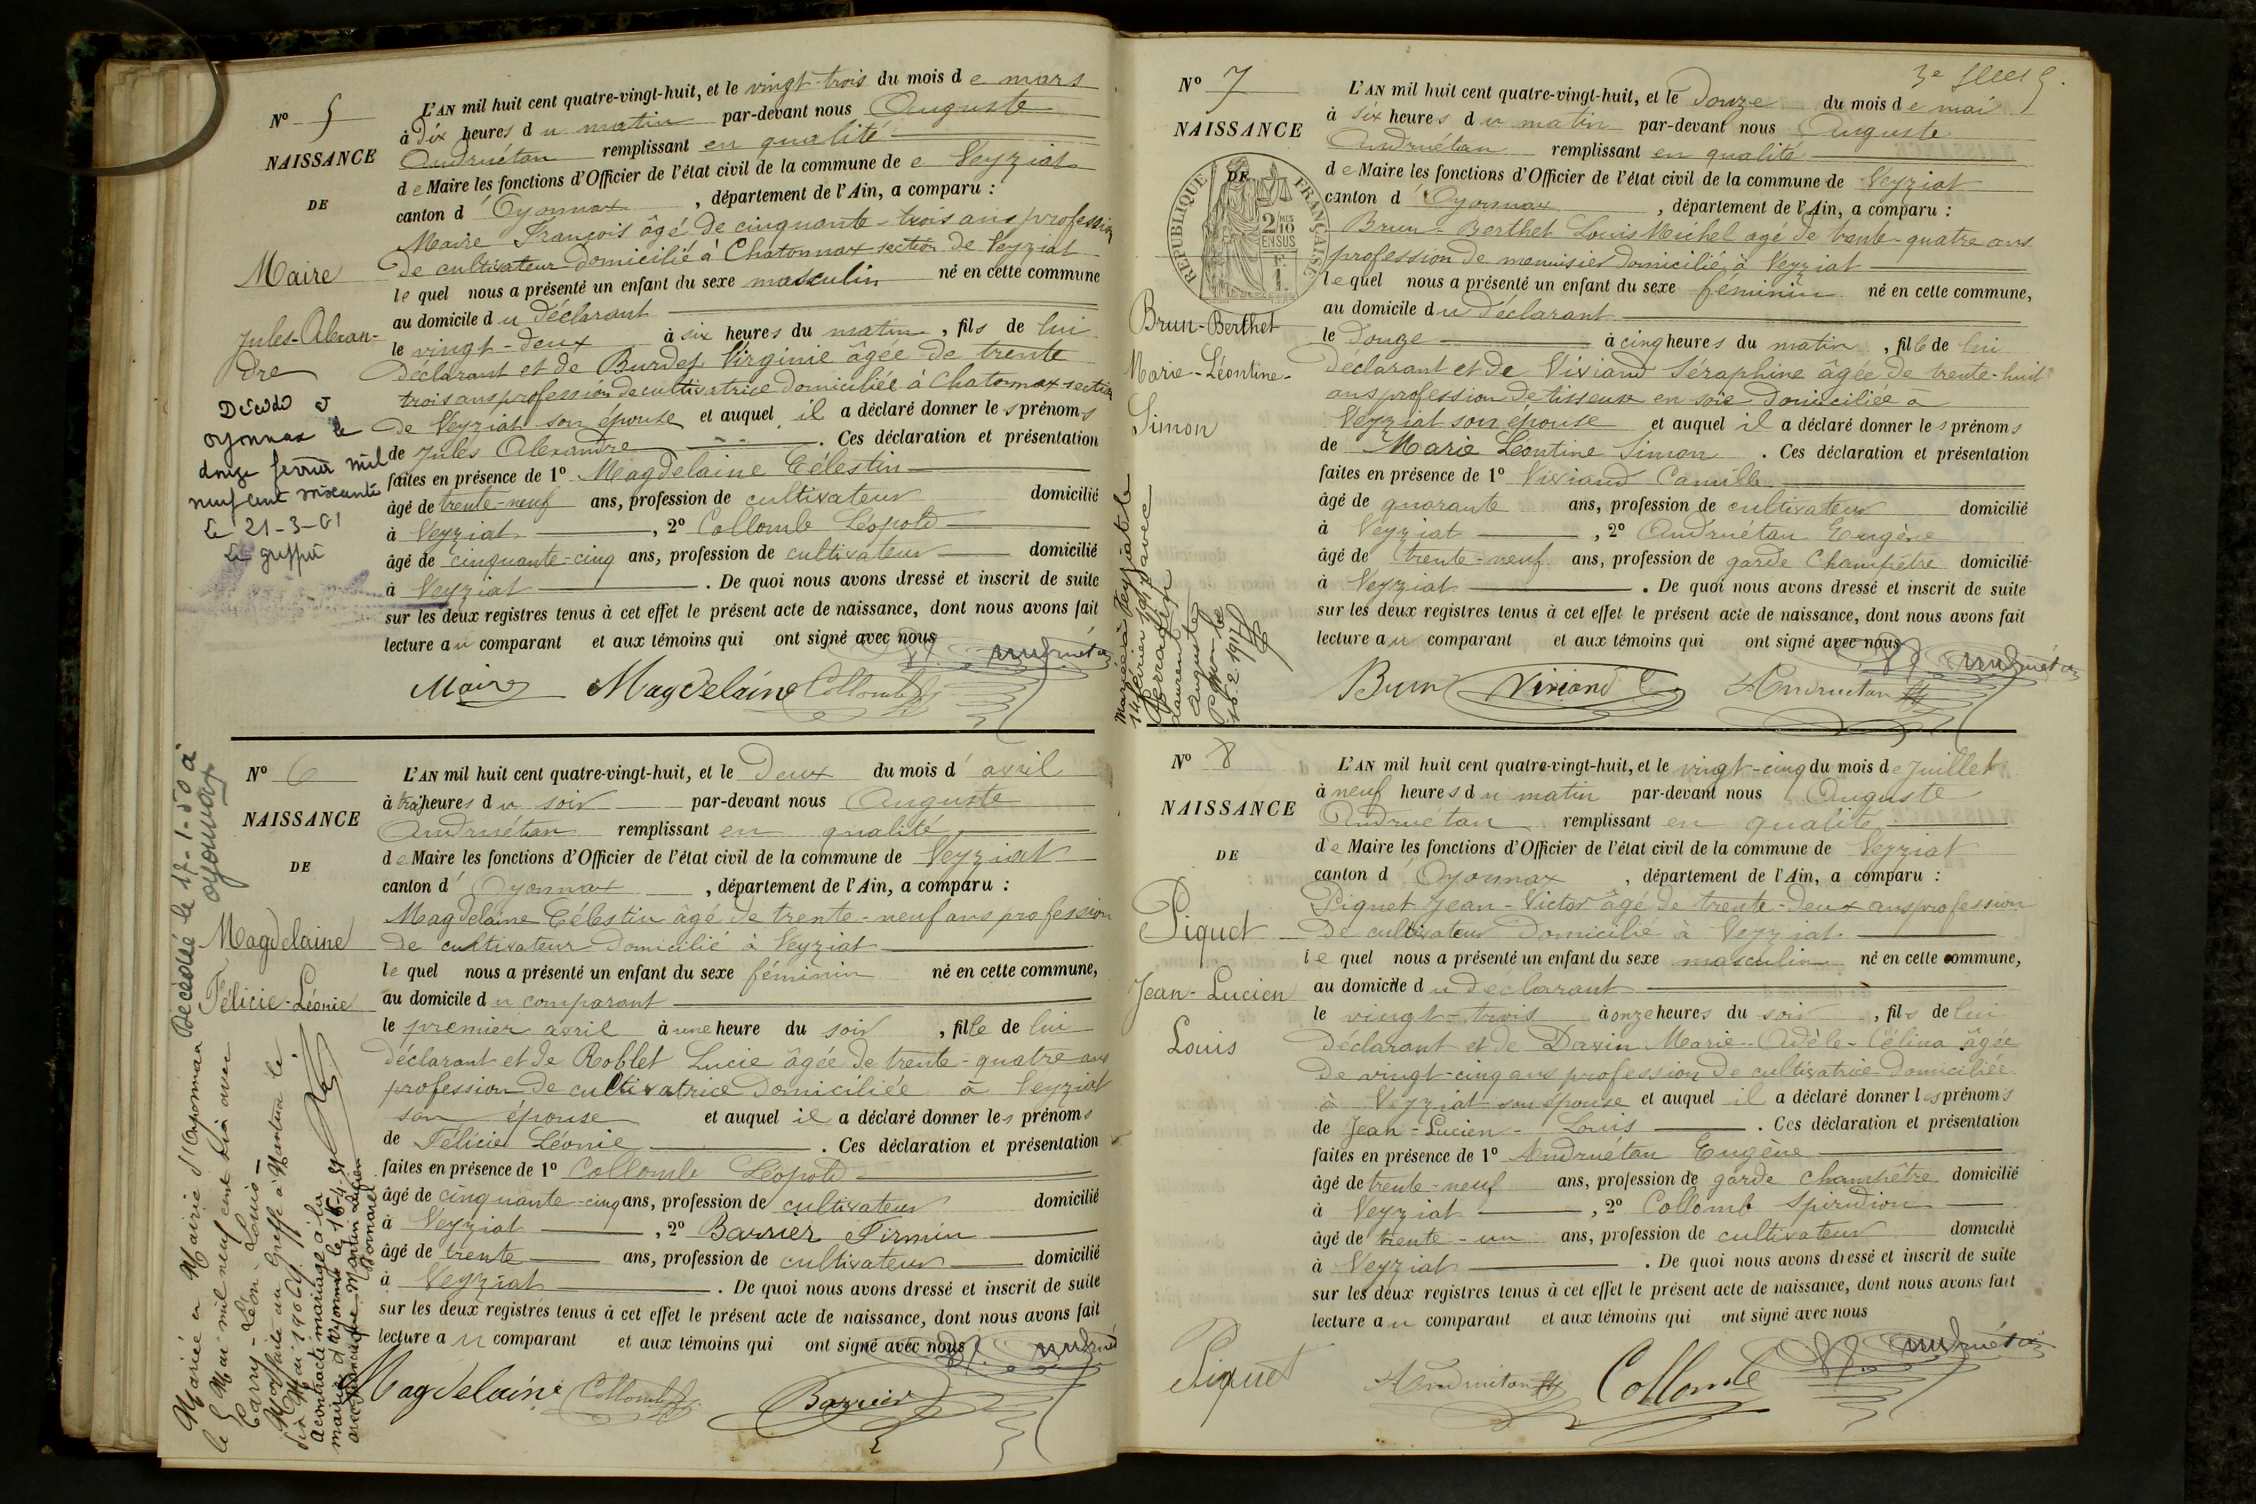 N° 5
NAISSANCE
DE
Maire
Jules-Alexan-
dre
Décédé à
oyonnax le
douze fevrier mil
neuf cent soixante
Le 21-3-61
Le greffier
L'AN mil huit cent quatre-vingt-huit, et le vingt-trois du mois de mars
à dix heures du matin par-devant nous Auguste
Andruétan remplissant en qualité
de Maire les fonctions d'Officier de l'état civil de la commune de e Veyziat
canton d' Oyonnax, département de l'Ain, a comparu :
Maire François âgé de cinquante-trois ans profession
de cultivateur domicilié à Chatonnax section de Veyziat
lequel nous a présenté un enfant du sexe masculin né en cette commune
au domicile du déclarant
le vingt-deux à six heures du matin, fils de lui
déclarant et de Burdet Virginie âgée de trente
trois ans profession de cultivatrice domiciliée à Chatonnax section
de Veyziat son épouse et auquel il a déclaré donner les prénoms
de Jules Alexandre. Ces déclaration et présentation
faites en présence de 1° Magdelaine Célestin
âgé de trente-neuf ans, profession de cultivateur domicilié
à Veyziat, 2° Collomb Léopold
âgé de cinquante-cinq ans, profession de cultivateur domicilié
à Veyziat. De quoi nous avons dressé et inscrit de suite
sur les deux registres tenus à cet effet le présent acte de naissance, dont nous avons fait
lecture au comparant et aux témoins qui ont signé avec nous
Maire Magdelaine Collomb Andruétan
N° 6
NAISSANCE
DE
Magdelaine
Félicie-Léonie
Décédée le 17-1-50 à
oyonnax
Mariée en Mairie d'Oyonnax
le 5 Mai mil neuf cent six avec
Carry-Léon-Louis
Mayssiat au Greffe à Nantua le
dix Mai 1906
a contracté mariage à la
mairie d'Oyonnax le
avec Martin Lucien
Bonnarel
L'AN mil huit cent quatre-vingt-huit, et le Deux du mois d'avril
à trois heures du soir par-devant nous Auguste
Andruétan remplissant en qualité
de Maire les fonctions d'Officier de l'état civil de la commune de Veyziat
canton d' Oyonnax, département de l'Ain, a comparu :
Magdelaine Célestin âgé de trente-neuf ans profession
de cultivateur domicilié à Veyziat
lequel nous a présenté un enfant du sexe féminin né en cette commune,
au domicile du comparant
le premier avril à une heure du soir, fille de lui
déclarant et de Roblet Lucie âgée de trente-quatre ans
profession de cultivatrice domiciliée à Veyziat
son épouse et auquel il a déclaré donner les prénoms
de Félicie Léonie. Ces déclaration et présentation
faites en présence de 1° Collomb Léopold
âgé de cinquante-cinq ans, profession de cultivateur domicilié
à Veyziat, 2° Barrier Firmin
âgé de trente ans, profession de cultivateur domicilié
à Veyziat. De quoi nous avons dressé et inscrit de suite
sur les deux registres tenus à cet effet le présent acte de naissance, dont nous avons fait
lecture au comparant et aux témoins qui ont signé avec nous
Magdelaine Collomb Barrier Andruétan
N° 7
NAISSANCE
DE
RÉPUBLIQUE FRANÇAISE
2/10 EN SUS
Brun-Berthet
Marie-Léontine-
Simon
Mariée à Veyziat le
14 février 1911 avec
Perratin
Laurent
Auguste
16.2.1911
3e
L'AN mil huit cent quatre-vingt-huit, et le douze du mois de mai
à six heures du matin par-devant nous Auguste
Andruétan remplissant en qualité
de Maire les fonctions d'Officier de l'état civil de la commune de Veyziat
canton d' Oyonnax, département de l'Ain, a comparu :
Brun-Berthet Louis Michel agé de trente-quatre ans
profession de menuisier domicilié à Veyziat
lequel nous a présenté un enfant du sexe féminin né en cette commune,
au domicile du déclarant
le douze à cinq heures du matin, fille de lui
déclarant et de Viviand Séraphine âgée de trente-huit
ans profession de tisseuse en soie domiciliée a
Veyziat son épouse et auquel il a déclaré donner les prénoms
de Marie Léontine Simon. Ces déclaration et présentation
faites en présence de 1° Viviand Camille
âgé de quarante ans, profession de cultivateur domicilié
à Veyziat, 2° Andruétan Eugène
âgé de trente-neuf ans, profession de garde champêtre domicilié
à Veyziat. De quoi nous avons dressé et inscrit de suite
sur les deux registres tenus à cet effet le présent acte de naissance, dont nous avons fait
lecture au comparant et aux témoins qui ont signé avec nous
Brun Viviand C Andruétan Andruétan
N° 8
NAISSANCE
DE
Piquet
Jean-Lucien
Louis
L'AN mil huit cent quatre-vingt-huit, et le vingt-cinq du mois de Juillet
à neuf heures du matin par-devant nous Auguste
Andruétan remplissant en qualité
de Maire les fonctions d'Officier de l'état civil de la commune de Veyziat
canton d' Oyonnax, département de l'Ain, a comparu :
Piquet Jean-Victor âgé de trente-deux ans profession
de cultivateur domicilié à Veyziat
lequel nous a présenté un enfant du sexe masculin né en cette commune,
au domicile du declarant
le vingt-trois à onze heures du soir, fils de lui
déclarant et de Davin Marie-Adèle-Célina âgée
de vingt-cinq ans profession de cultivatrice domiciliée
à Veyziat son épouse et auquel il a déclaré donner les prénoms
de Jean-Lucien-Louis. Ces déclaration et présentation
faites en présence de 1° Andruétan Eugène
âgé de trente-neuf ans, profession de garde champêtre domicilié
à Veyziat, 2° Collomb Spiridion
âgé de trente-un ans, profession de cultivateur domicilié
à Veyziat. De quoi nous avons dressé et inscrit de suite
sur les deux registres tenus à cet effet le présent acte de naissance, dont nous avons fait
lecture au comparant et aux témoins qui ont signé avec nous
Piquet Andruétan Collomb Andruétan